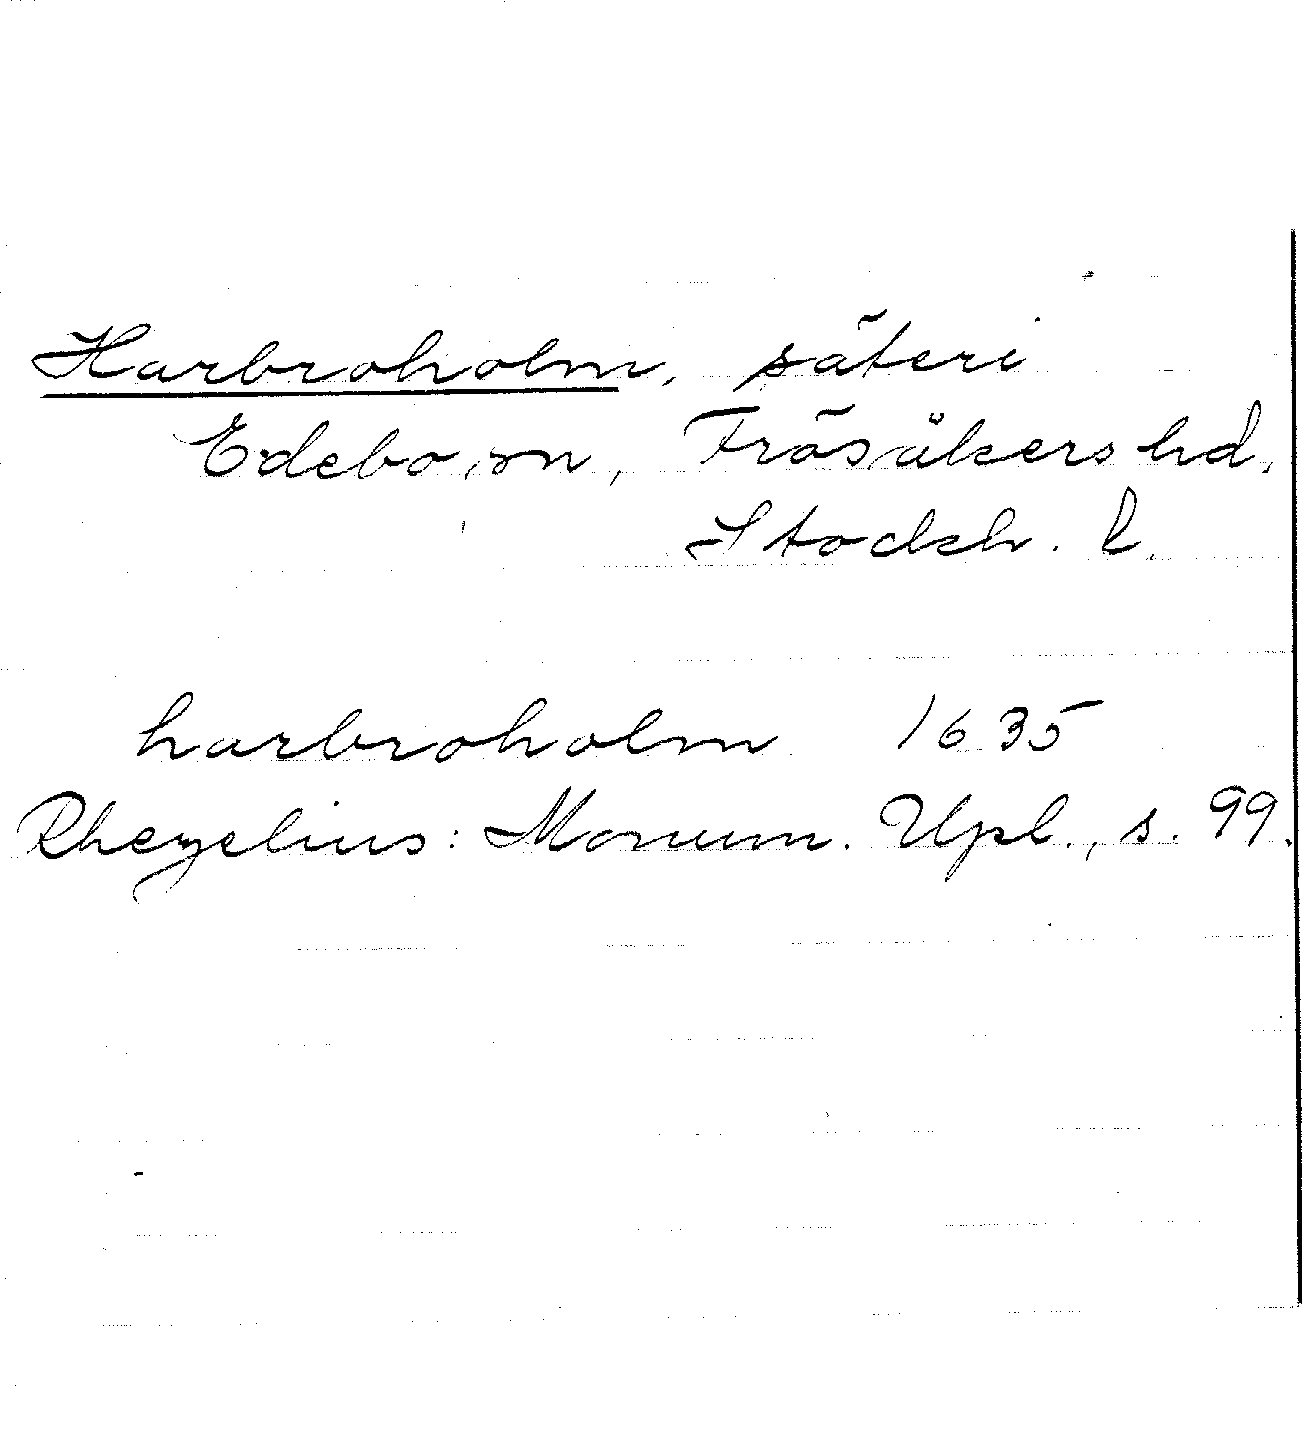 Harbroholm, säteri
Edebo sn, Frösåkers hd,
Stockh. l.
harbroholm 1635
Rhezelius: Monum. Upl., s. 99.